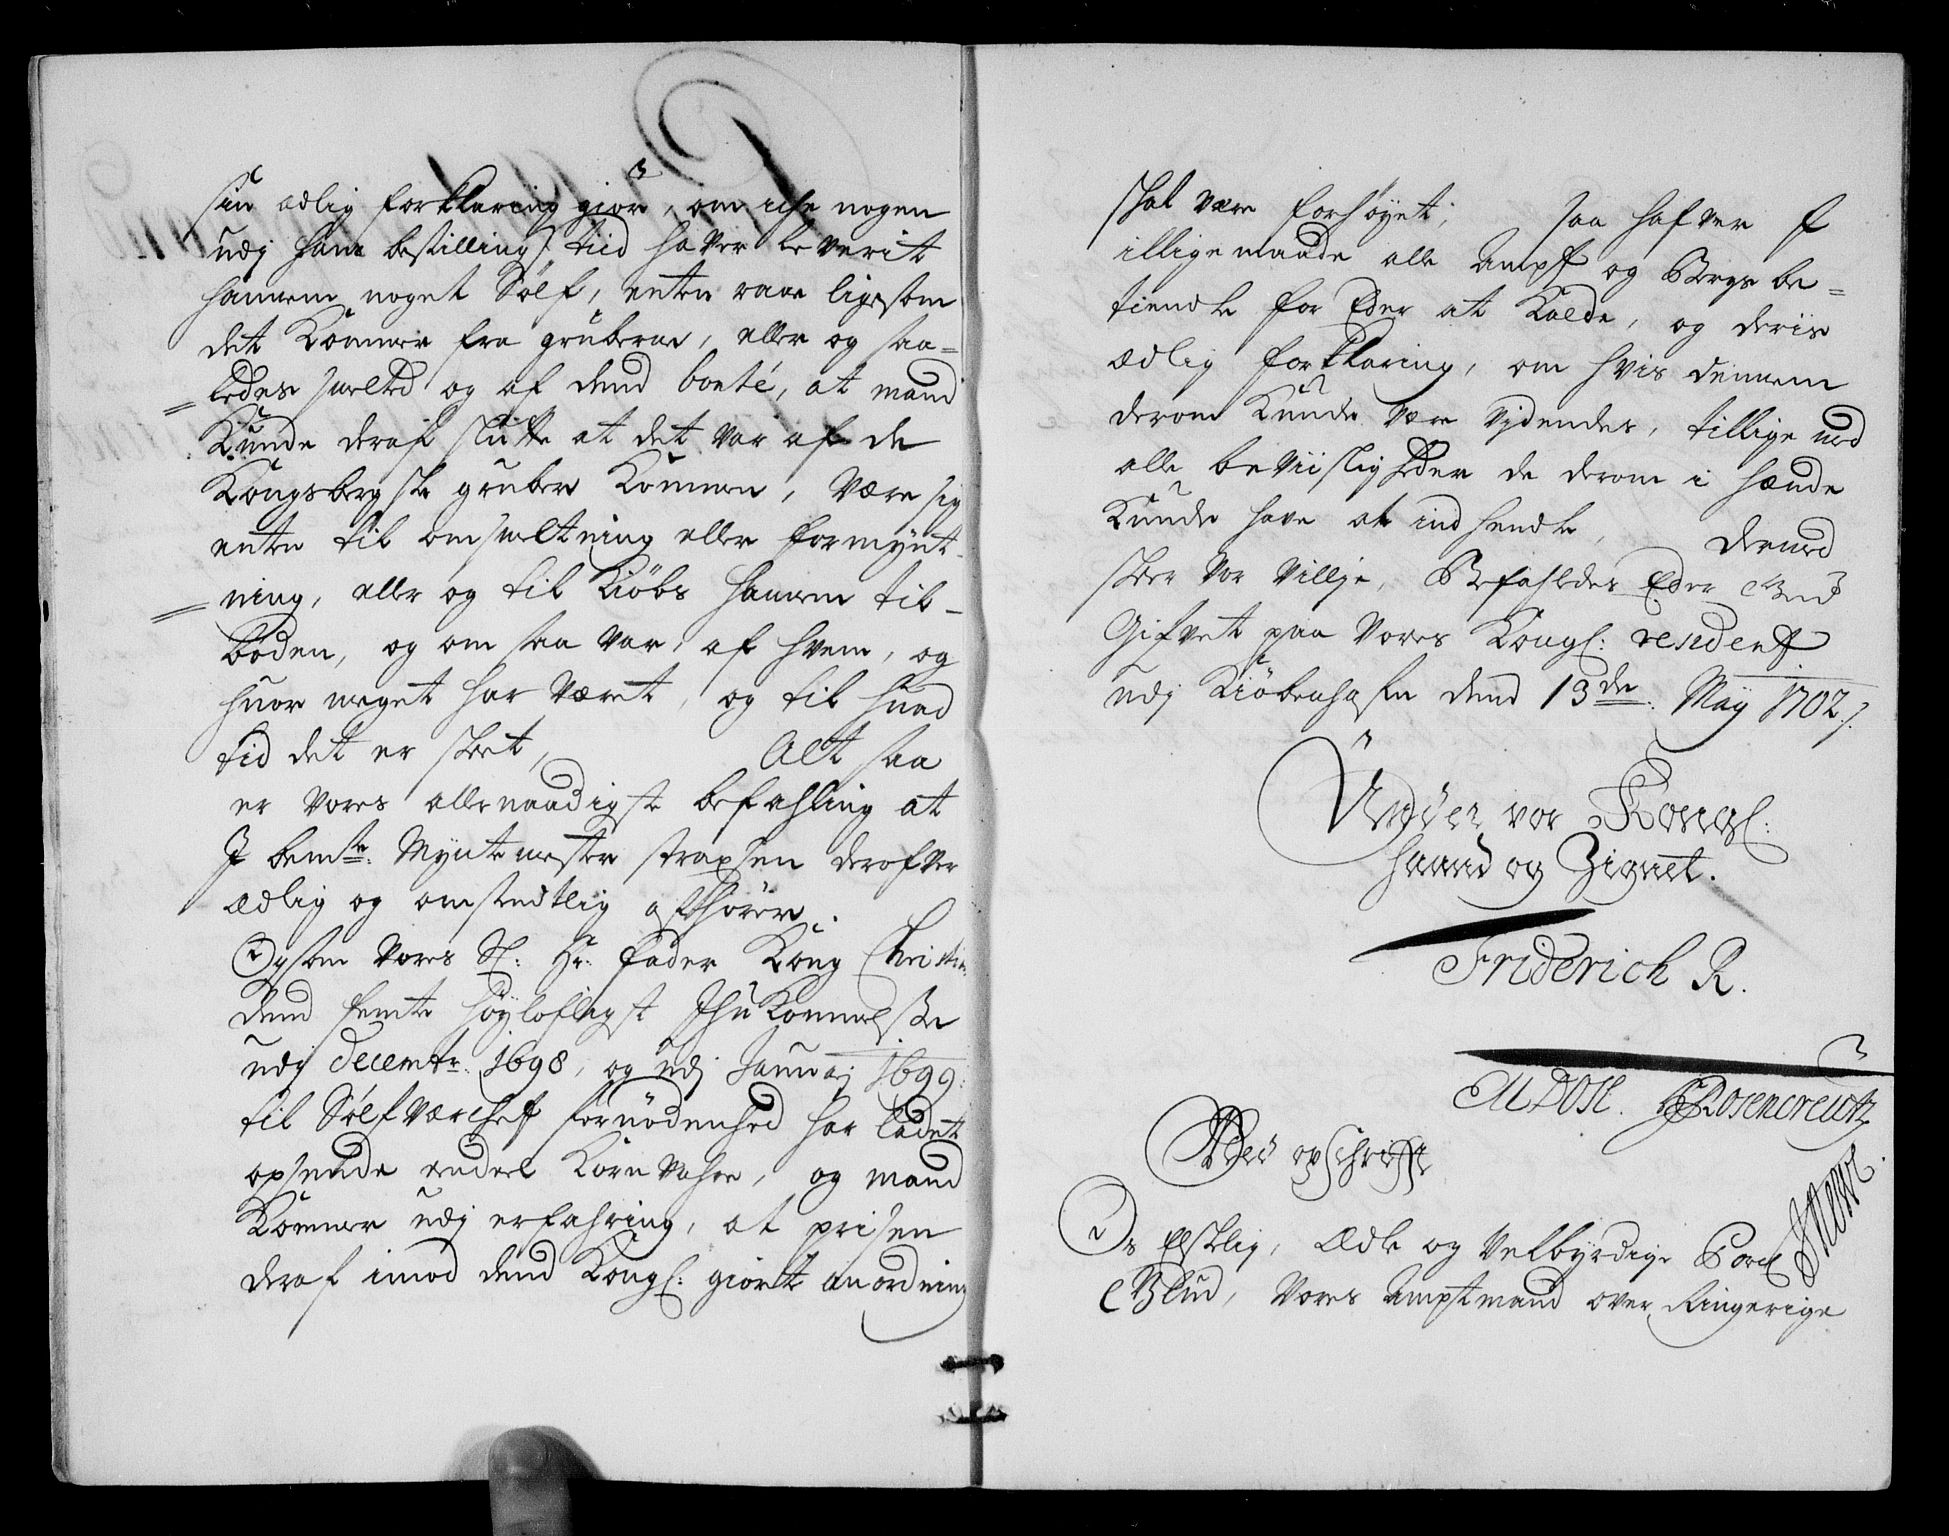 sin ædlig forklaring giør, om iche nogen
udj hans bestillings tiid haver leverit
hannem noget Sølf, enten raae ligesom
det kommer fra gruberne, eller og saa-
ledes smelted og af dend bonté, at mand
kunde deraf slutte at det var af de
Kongsbergske gruber kommen, være sig
enten til omsmeltning eller formynt-
ning, eller og til kiøbs hannem til-
boden, og om saa var, af hvem, og
huor meget har været, og til huad
tid det er skeet, Alt saa
er vores allernaadigste befahling at
I bemte: Myntemester strapsen derofver
ædlig og omstendtlig afhører.
Og som vores Sl: Hr: fader Kong Christian
dend femte høyloflig st Ihukommelse
udj decembr. 1698, og udj Januarj 1699.
til Sølfværchets fornødenhed har ladet
opsende endeel Kornvahre, og mand
kommer udj erfahring, at prisen
deraf imod dend Kongl: giorte anordning
skal være forhøyet; saa hafver I
illigemaade alle Ampts og Bergs be-
tiendte for Eder at kalde, og deris
ædlig forklaring, om hvis dennem
derom kunde være videndes, tillige med
alle beviisligheder de derom i hænde
kunde have at indhendte, dermed
skeer vor villje, Befahlendes Eder Gud
Gifvet paa vores Kongl: residentz
udj Kiøbenhafn dend 13de: Maij 1702.
Under vor Kongl:
haand og Zignet.
Friderich R.
U Dose. Rosencreutz
Med opschrifft
Os Elskelig, Ædle og velbyrdige Povel
Glud, vores Amptmand over Ringerige